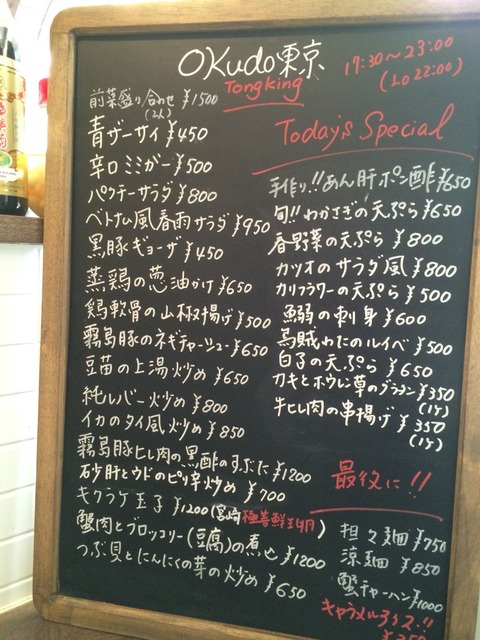 OKudo東京
Tongking
17:30～23:00
(LO 22:00)
前菜盛り合わせ ¥1500
(2人)
青ザーサイ ¥450
辛口ミミガー ¥500
パクチーサラダ ¥800
ベトナム風春雨サラダ ¥950
黒豚ギョーザ ¥450
蒸鶏の葱油かけ ¥650
鶏軟骨の山椒揚げ ¥500
霧島豚のネギチャーシュー ¥650
豆苗の上湯炒め ¥650
純レバー炒め ¥800
イカのタイ風炒め ¥850
霧島豚ヒレ肉の黒酢のすぶた ¥1200
砂肝とウドのピリ辛炒め ¥700
キクラゲ玉子 ¥1200(宮崎
蟹肉とブロッコリー(豆腐)の煮込 ¥1200
つぶ貝とにんにくの芽の炒め ¥650
Today's Special
手作り!!あん肝ポン酢 ¥650
旬!!わかさぎの天ぷら ¥650
春野菜の天ぷら ¥800
カツオのサラダ風 ¥800
カリフラワーの天ぷら ¥500
魚弱の刺身 ¥600
烏賊わたのルイベ ¥500
白子の天ぷら ¥650
カキとホウレン草のグラタン ¥350
(1ヶ)
牛ヒレ肉の串揚げ ¥350
(1ヶ)
最後に!!
担々麺 ¥750
涼麺 ¥850
蟹チャーハン ¥1000